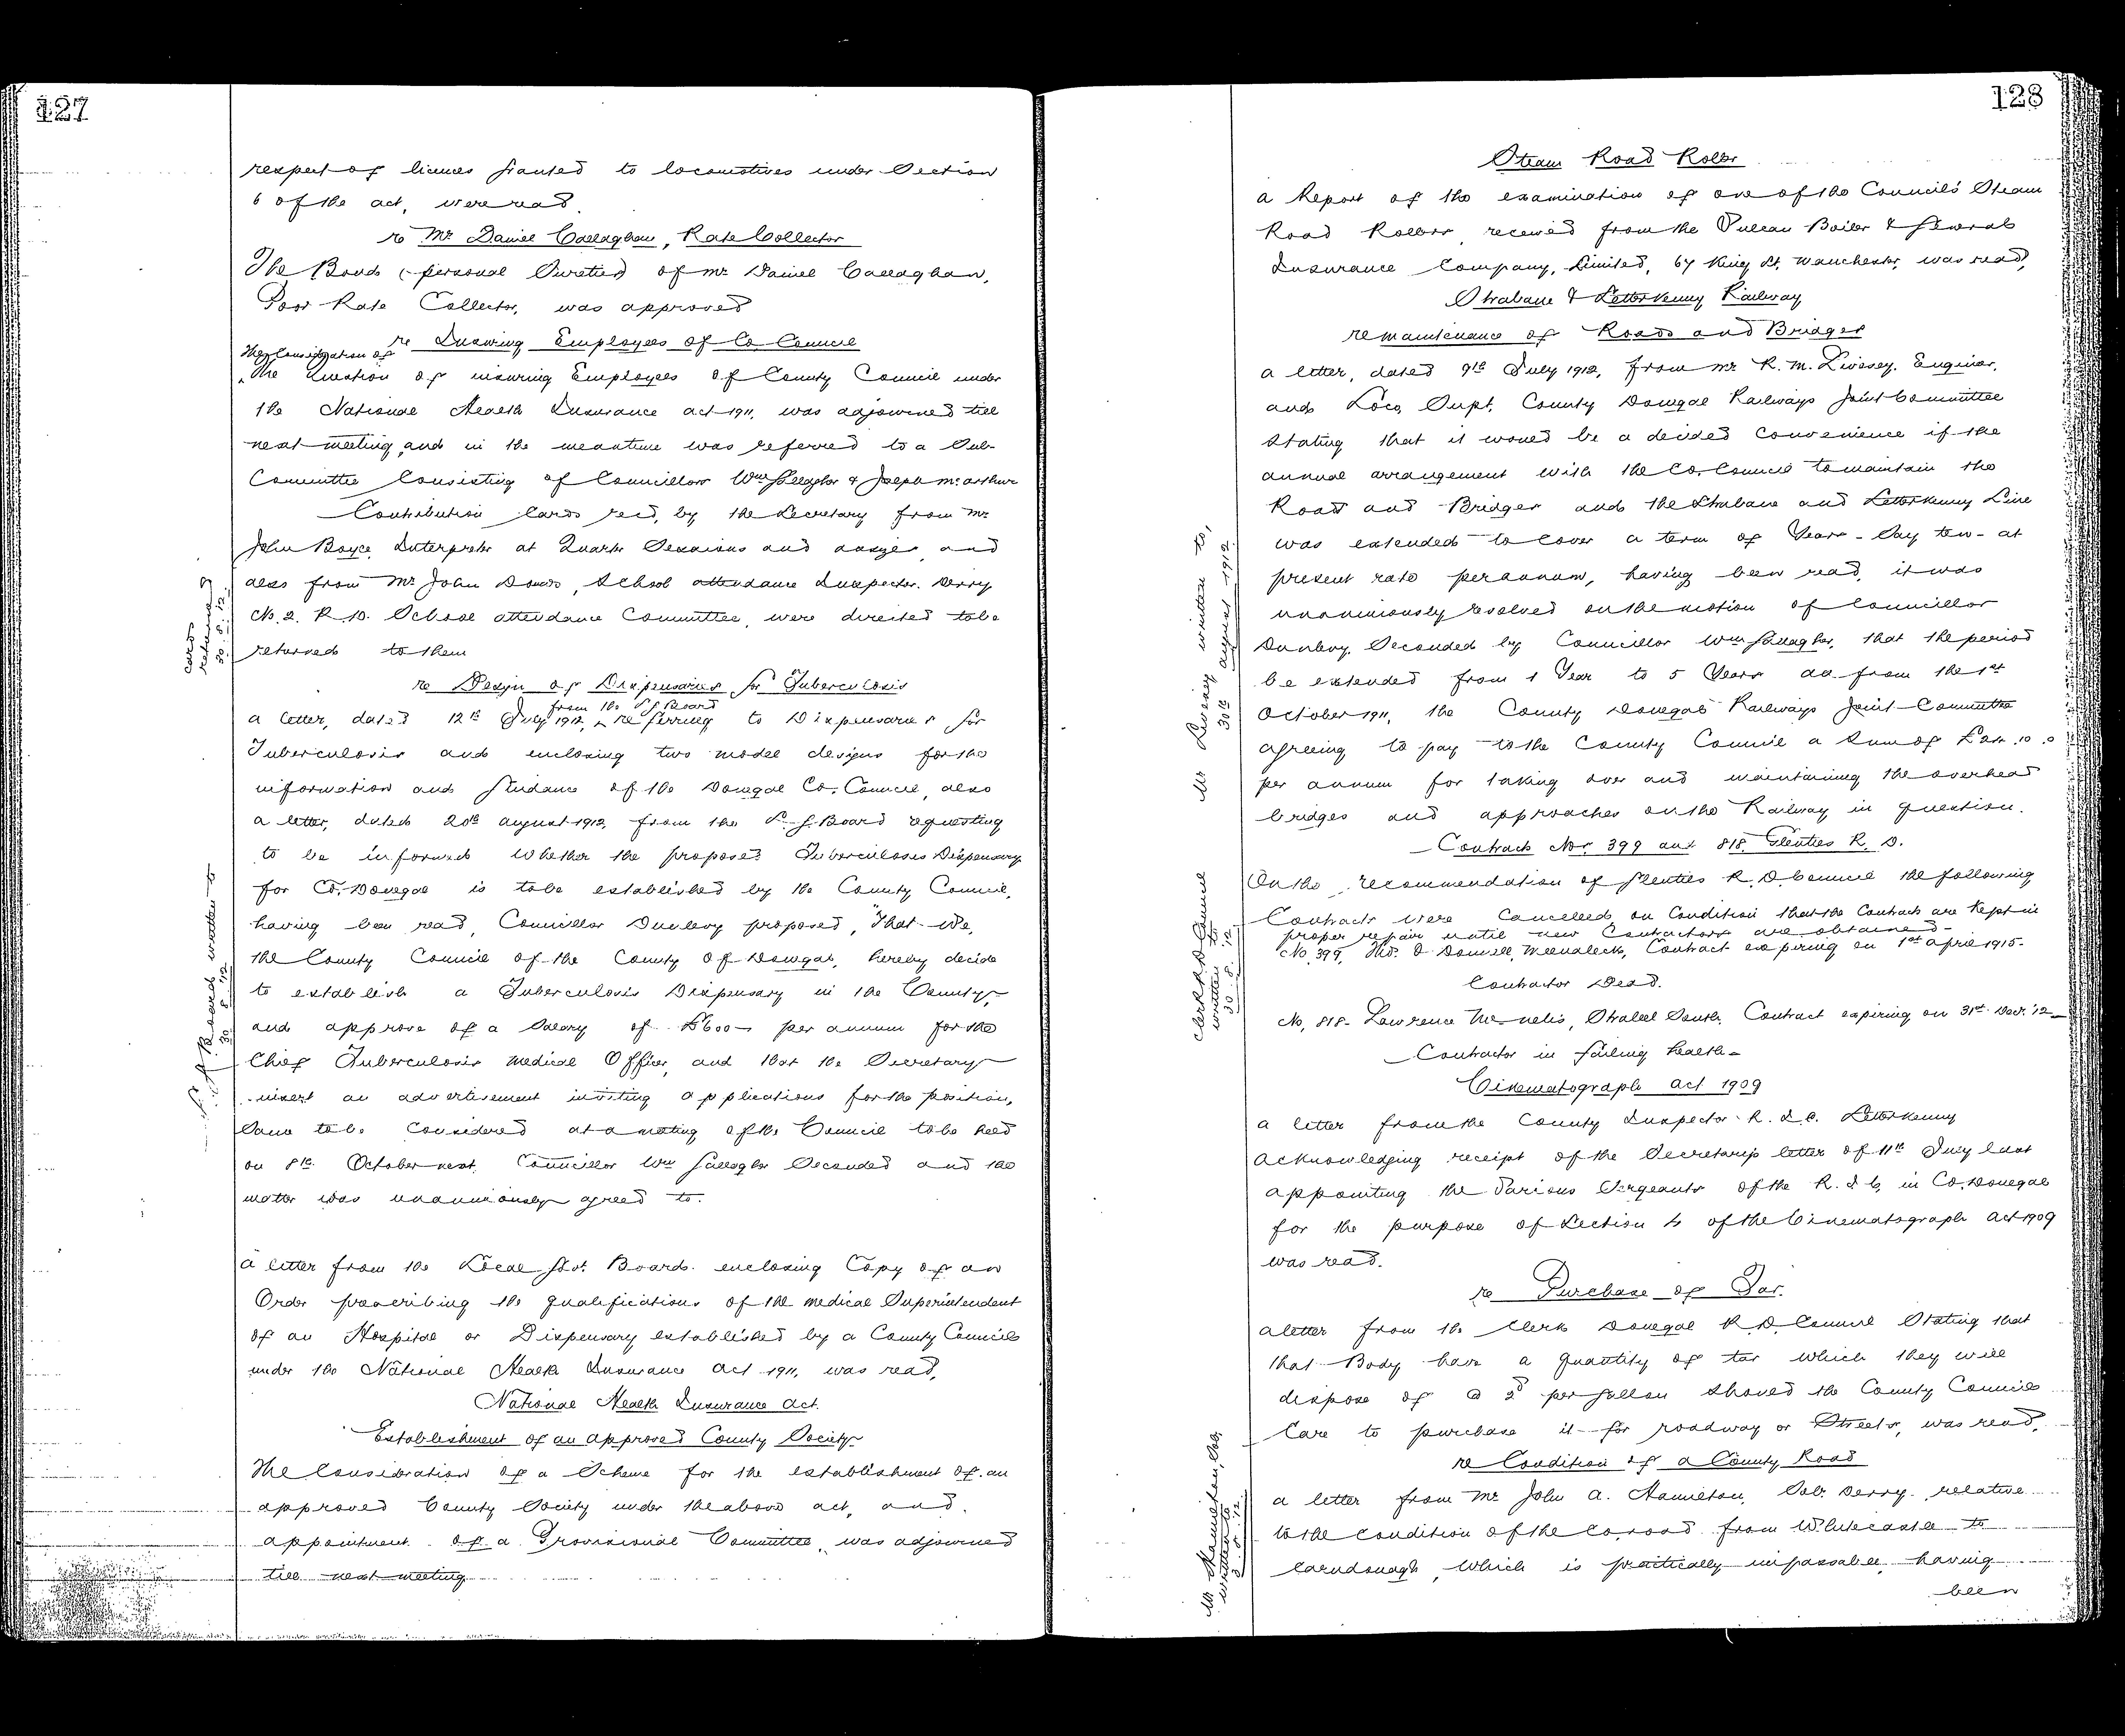 127
respect of licences granted to locomotives under Section
6 of the act, were read.
re Mr. Daniel Callaghan, Rate Collector
The Bond (personal Sureties) of Mr Daniel Callaghan,
Poor Rate Collector, was approved
re Insuring Employees of Co. Council
The Consideration of
the Question of insuring Employees of County Council under
the National Health Insurance act 1911, was adjourned till
next meeting, and in the meantime was referred to a Sub-
Committee Consisting of Councillors Wm Gallagher & Joseph McArthur
Contribution Cards recd, by the Secretary from Mr
John Boyce, Interpreter at Quarter Sessions and assizes, and
also from Mr John Doud, School attendance Inspector, Derry
No. 2. R.D. School attendance Committee, were directed to be
returned to them
Cards returned 30.8.12.
re Design of Dispensaries for Tuberculosis
from the L G Board
a letter, dated 12th July 1912, referring to Dispensaries for
Tuberculosis and enclosing two model designs for the
information and guidance of the Donegal Co. Council, also
a letter, dated 20th august 1912, from the L. G. Board requesting
to be informed whether the proposed Tuberculosis Dispensary
for Co. Donegal is to be established by the County Council,
having been read, Councillor Dunlevy proposed, "That We,
the County Council of the County of Donegal, hereby decide
to establish a Tuberculosis Dispensary in the County,
and approve of a Salary of £600 - per annum for the
Chief Tuberculosis Medical Officer, and that the Secretary
insert an advertisement inviting applications for the position,
Same to be Considered at a meeting of the Council to be held
on 8th October next. Councillor Wm Gallagher Seconded and the
matter was unanimously agreed to.
L. G. Board written to 30.8.12
a letter from the Local Govt. Board enclosing Copy of an
Order prescribing the qualifications of the Medical Superintendent
of an Hospital or Dispensary established by a County Council
under the National Health Insurance Act 1911, was read,
National Health Insurance Act.
Establishment of an approved County Society
The Consideration of a Scheme for the establishment of an
approved County Society under the above act, and
appointment of a Provisional Committee, was adjourned
till next meeting.
128
Steam Road Roller
a Report of the examination of one of the Council's Steam
Road Rollers received from the Vulcan Boiler & General
Insurance Company, Limited, 67 King St, Manchester, was read,
Strabane & Letterkenny Railway
re maintenance of Roads and Bridges
a letter, dated 9th July 1912, from Mr R. M. Livesey, Engineer,
and Loco. Supt. County Donegal Railways Joint Committee
stating that it would be a decided convenience if the
annual arrangement with the Co. Council to maintain the
Roads and Bridges and the Strabane and Letterkenny Line
was extended to cover a term of Years - Say ten - at
present rate per annum, having been read, it was
unanimously resolved on the motion of Councillor
Dunlevy, Seconded by Councillor Wm Gallagher, that the period
be extended from 1 Year to 5 Years as from the 1st
October 1911, the County Donegal Railways Joint-Committee
agreeing to pay to the County Council a Sum of 10. 0
per annum for taking over and maintaining the overhead
bridges and approaches on the Railway in question.
Mr Livesey written to, 30th august 1912
Contracts Nos 399 and 818. Glenties R. D.
On the recommendation of Glenties R. D. Council the following
Contracts were Cancelled, on Condition that the Contracts are kept in
proper repair until new Contractors are obtained -
No. 399, Thos. O'Donnell, Contract expiring on 1st april 1915-
Contractor Dead.
No. 818- Lawrence McNelis, Straleel South, Contract expiring on 31st Decr. '12-
Contractor in failing health-
Clerk R D Council written to 30.8.12.
Cinematograph Act 1909
a letter from the County Inspector R. I. C. Letterkenny
acknowledging receipt of the Secretary's letter of 11th July last
appointing the Various Sergeants of the R. I. C. in Co. Donegal
for the purpose of Section 4 of the Cinematograph Act 1909
was read.
re Purchase of Tar.
a letter from the Clerk Donegal R. D. Council Stating that
that Body have a quantity of tar which they will
dispose of @ 2d per gallon should the County Council
Care to purchase it for roadway or Streets, was read,
re Condition of a County Road
a letter from Mr John A. Hamilton, Solr Derry, relative
to the condition of the Co. road from Whitecastle to
Carndonagh, which is practically impassable, having
been
Mr Hamilton, Solr, written to